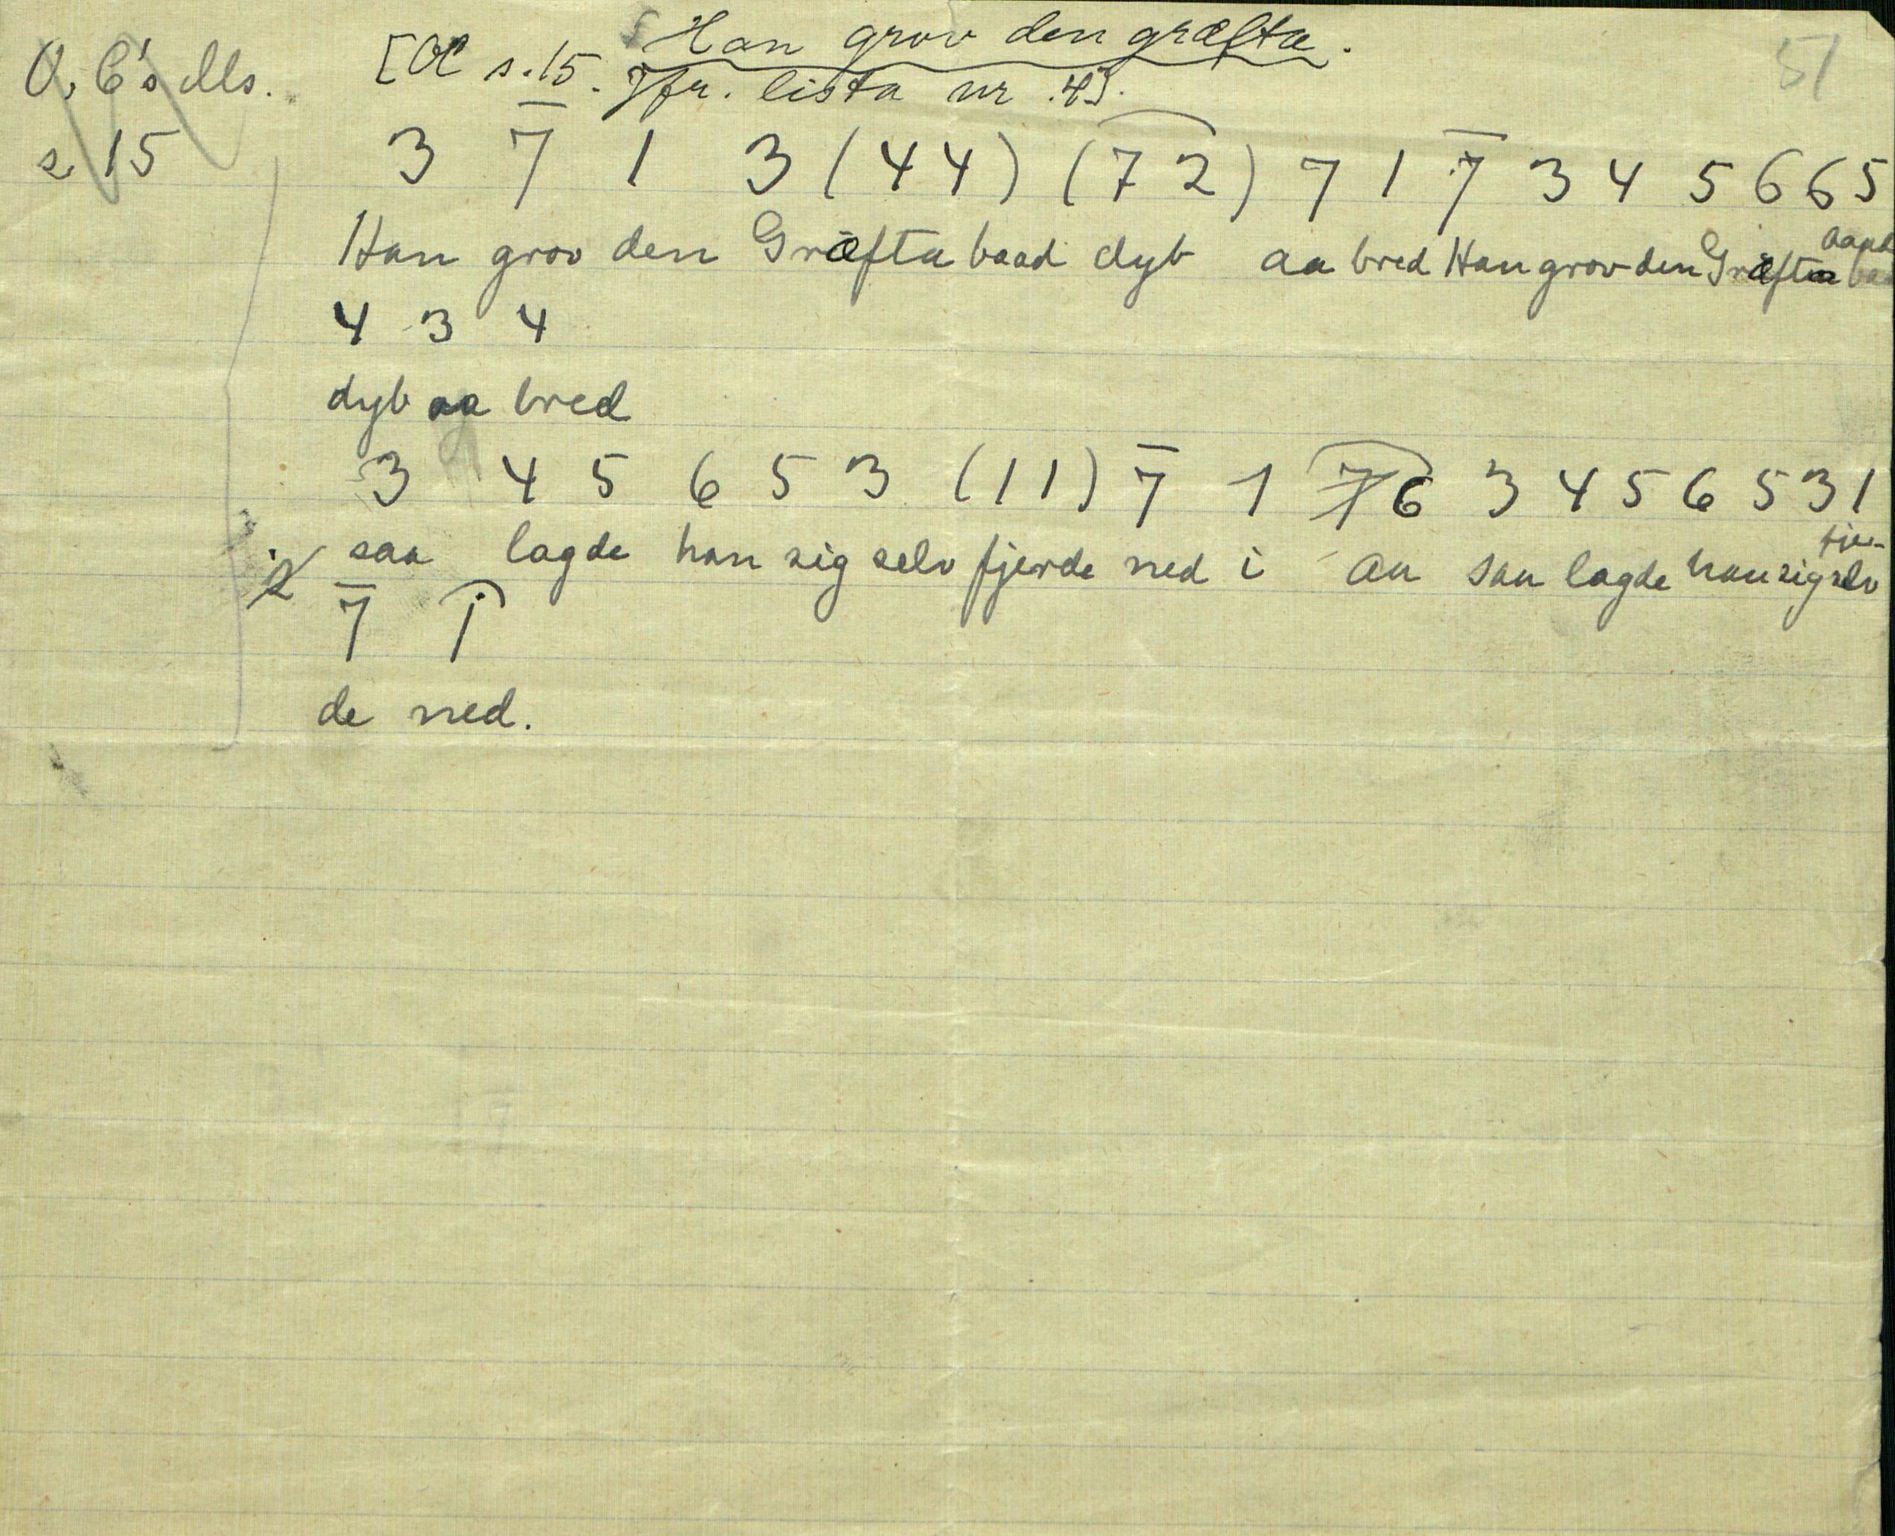 Han grov den græfta.
O. C's Ms. [OC s. 15. Jfr. lista nr. 4]. 51
s 15
3 7 1 3 (44) (72) 7 1 7 3 4 5 6 6 5
Han grov den Græfta baad dyb aa bred Han grov den Græfta
4 3 4
dyb aa bred
3 4 5 6 5 3 (11) 7 1 7 6 3 4 5 6 5 3 1
saa lagde han sig selv fjerde ned i aa saa lagde han sig selv fje-
7 1
de ned.